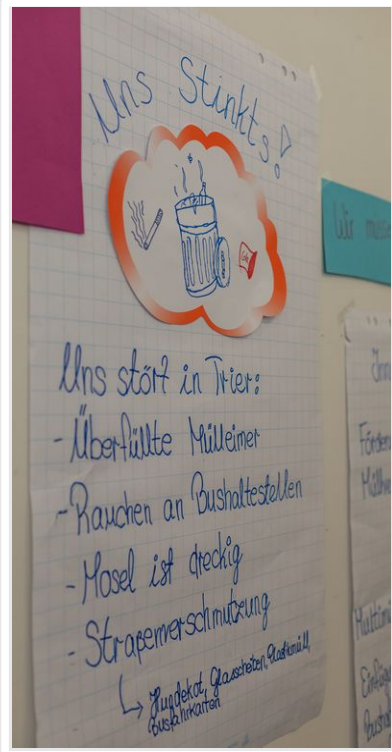 Uns Stinkts!
Uns stört in Trier:
- Überfüllte Mülleimer
- Rauchen an Bushaltestellen
- Mosel ist dreckig
- Straßenverschmutzung
↳ Hundekot, Glasscheiben, Plastikmüll,
Busfahrkarten
Wir müsse